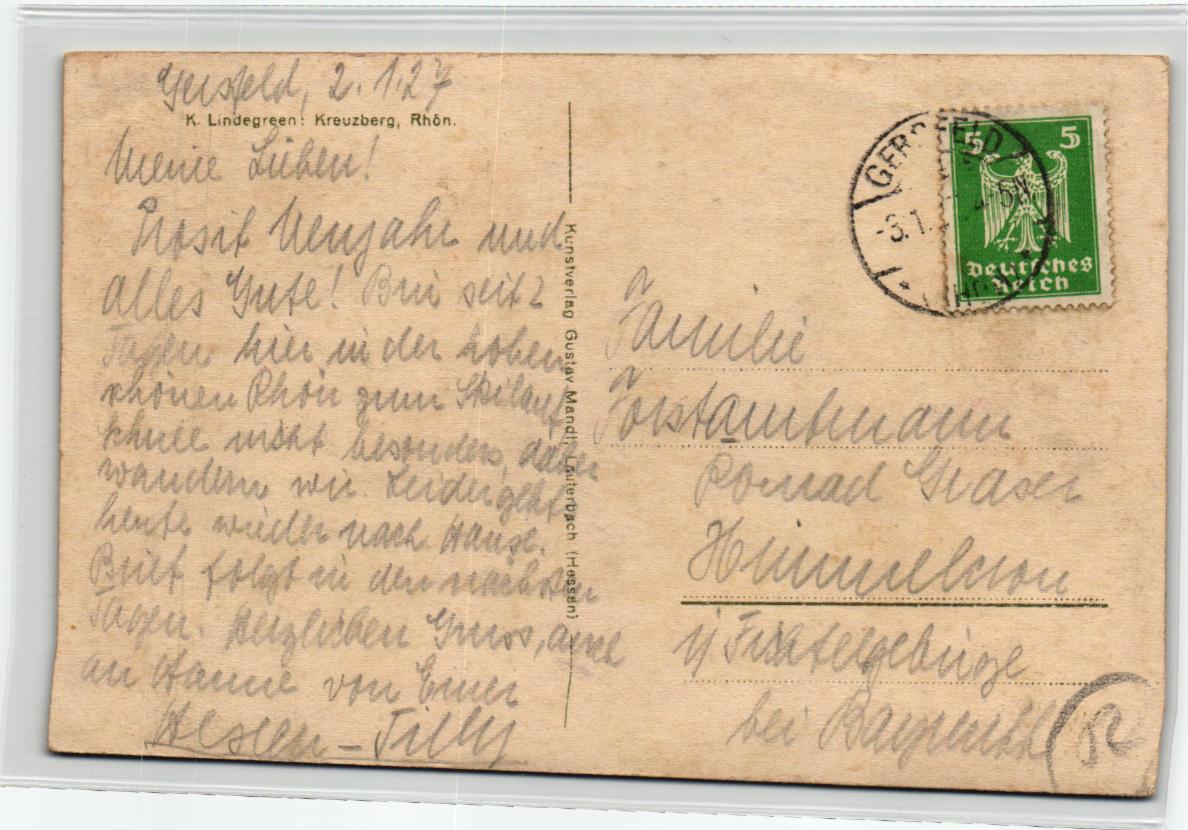 Gersfeld, 2.1.27
K. Lindegreen: Kreuzberg, Rhön.
Meine Lieben!
Prosit Neujahr und
alles Gute! Bin seit 2
Tagen hier in der hohen
schönen Rhön zum Skilauf
Schnee nicht besonders, daher
wandern wir. Leider geht
heute wieder nach Hause.
Brief folgt in den nächsten
Tagen. Herzlichen Gruss, auch
an Hanne von Eurer
Hessen-Tilly
Kunstverlag Gustav Mandt, Lauterbach (Hessen)
GERSFELD
3.1.
5 5
Deutsches
Reich
Familie
Forstamtmann
Konrad Graser
Himmelkron
i/ Fichtelgebirge
bei Bayreuth